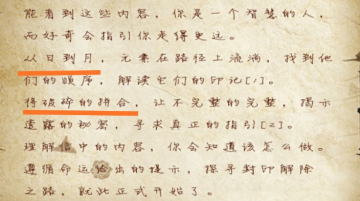 能看到这些内容，你是一个智慧的人，
而好奇会指引你走得更远。
从日到月，元素在路径上流淌，找到他
们的顺序，解读它们的印记[1]。
将破碎的拼合，让不完整的完整，揭示
遗露的秘密，寻求真正的指引[2]。
理解 中的内容，你会知道该怎么做。
遵循命运 出的提示，探寻封印解除
之路，就此正式开始了。